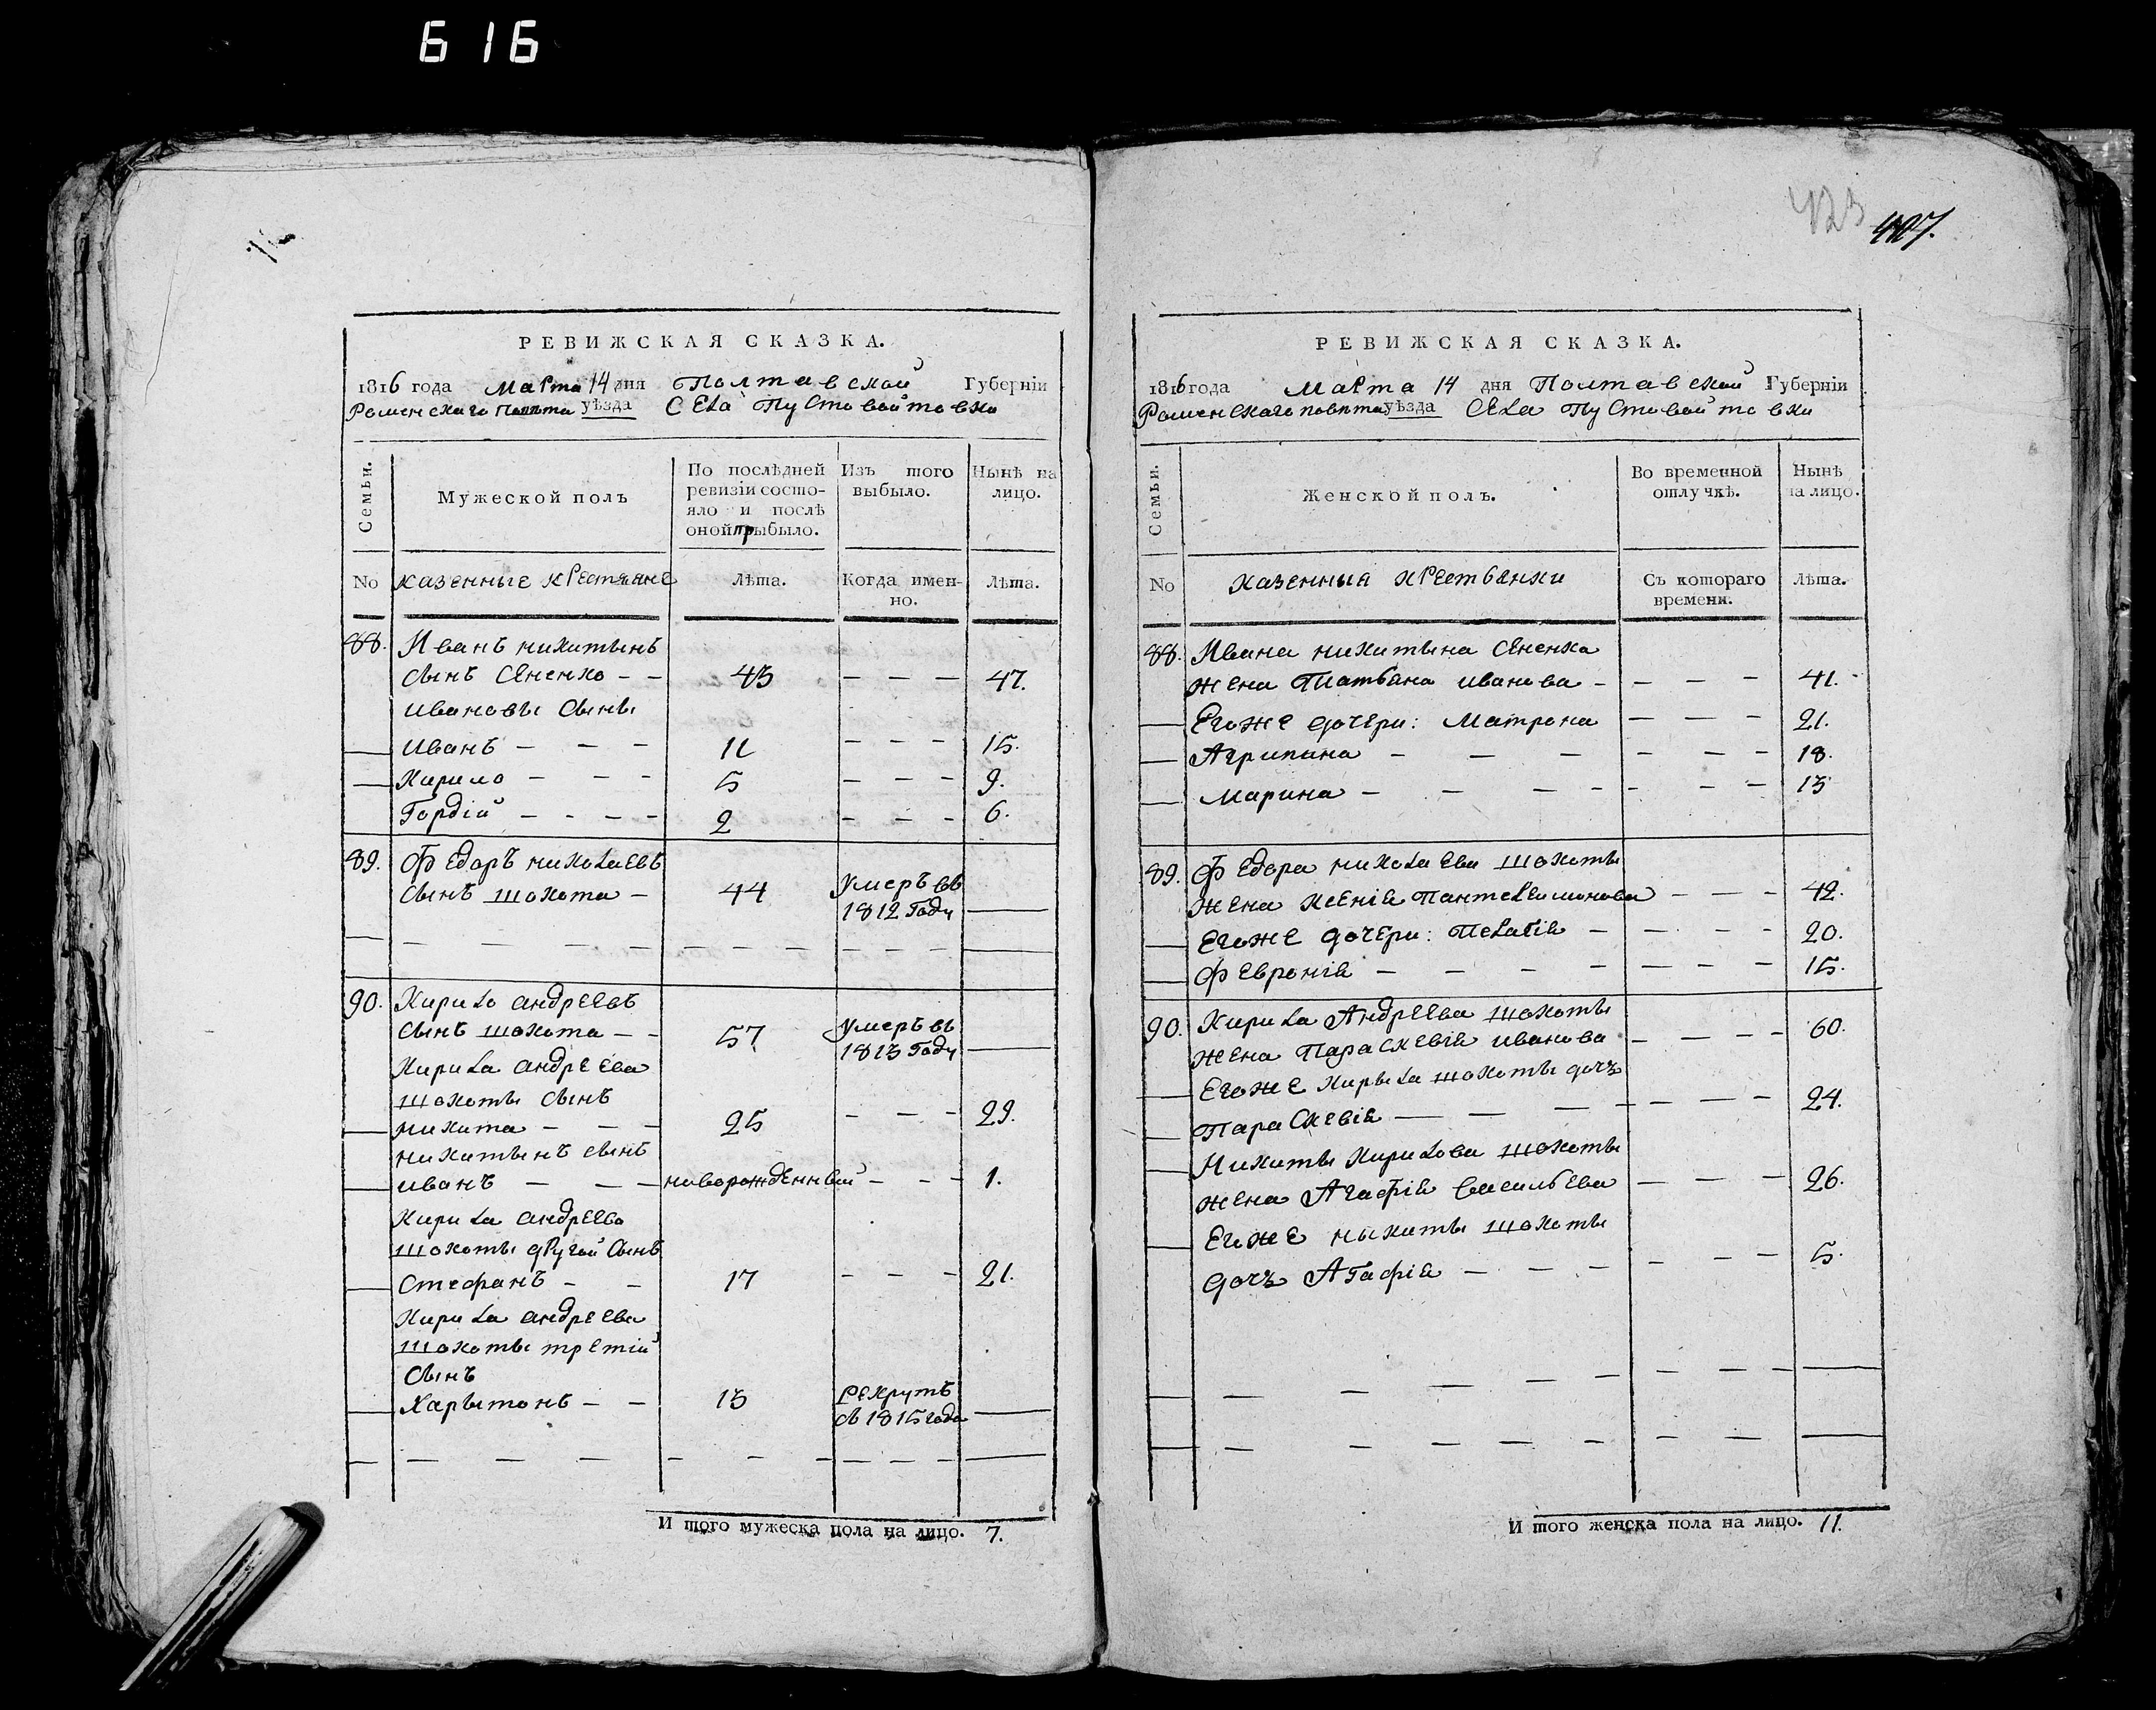 616
РЕВИЖСКАЯ СКАЗКА.
1816 года Марта 14 дня Полтавской Губерніи
Роменскаго повѣта уѣзда Села Пустовойтовки
Семьи.
Мужеской полъ
По послѣдней ревизіи состо-
яло и послѣ
оной прибыло.
Изъ того
выбыло.
Нынѣ на
лицо.
No казенные крестьяне
Лѣта.
Когда имен-
но.
Лѣта.
88. Иванъ никитынъ
сынъ Сененко - - 43 - - - 47.
ивановы сыны
иванъ - - - 11 - - - 15.
Кирило - - - 5 - - - 9.
Гордій - - - - 2 - - - 6.
89. Федоръ николаевъ
сынъ шокота - 44 умеръ въ
1812 году
90. Кирило андреевъ
сынъ шокота - - 57 умеръ въ
1813 году
Кирила андреева
шокоты сынъ
никита - - - 25 - - - 29.
никитынъ сынъ
иванъ - - - новорожденный - - - 1.
Кирила андреева
шокоты другой сынъ
Стефанъ - - 17 - - - 21.
Кирила андреева
шокоты третій
сынъ
Харытонъ - - 13 рекрутъ
съ 1815 года
И того мужеска пола на лицо. 7.
423
407.
РЕВИЖСКАЯ СКАЗКА.
1816 года Марта 14 дня Полтавской Губерніи
Роменскаго повѣта уѣзда Села Пустовойтовки
Семьи.
Женской полъ.
Во временной
отлучкѣ.
Нынѣ
на лицо.
No казенныя крестьянки
Съ котораго
времени.
Лѣта.
88. Ивана никитына Сененка
жена Татьяна иванова - - - - 41.
Егоже дочери: Матрона - - - 21.
Агрипина - - - - - - 18.
Марина - - - - - - - 13
89. Федора николаева шокоты
жена Ксенія Пантелеимонова - - - 42.
Егоже дочери: Пелагія - - - - 20.
Февронія - - - - - - - 15.
90. Кирила Андреева шокоты
жена Параскевія иванова - - - - 60.
Егоже Кирыла шокоты дочь
Параскевія - - - - - - - 24.
Никиты Кирилова шокоты
жена Агафія Васильева - - - 26.
Егоже ныкиты шокоты
дочь Агафія - - - - - - - 5.
И того женска пола на лицо. 11.